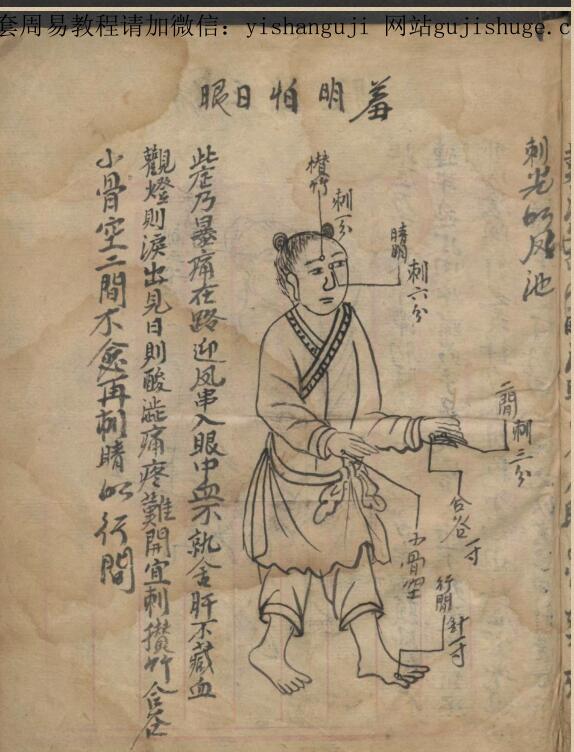 套周易教程请加微信：yishanguji 网站gujishuge.c
羞明怕日眼
刺光明风池
攢竹
刺一分
睛明
刺六分
二間
刺三分
合谷
一寸
小骨空
行間
針一寸
此症乃暴痛在路迎风串入眼中血不就舍肝不藏血
觀燈則淚出見日則酸澁痛疼難開宜刺攢竹合谷
小骨空二間不愈再刺睛明行間